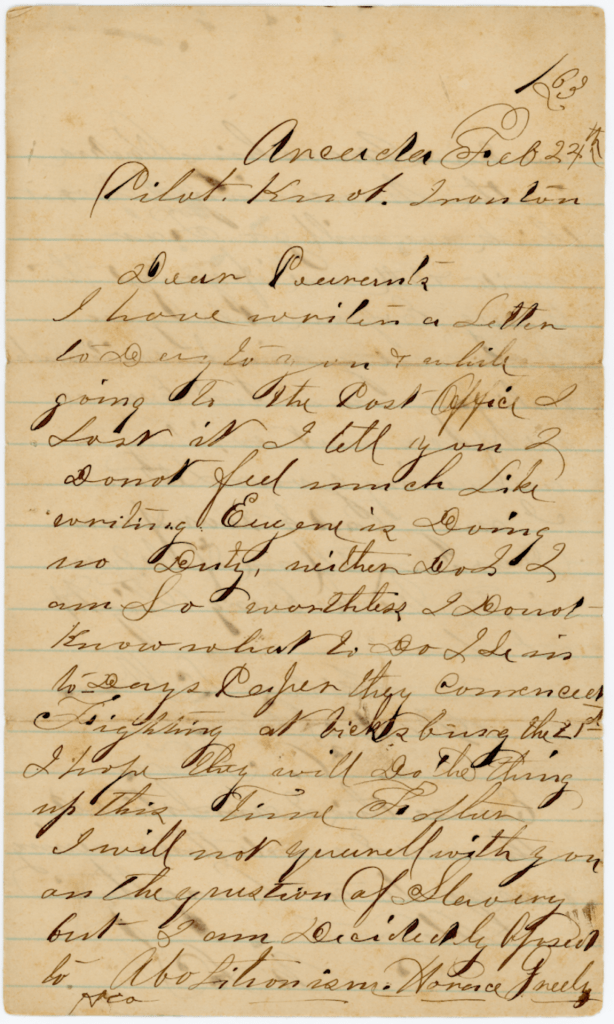 /63
Arcada Feb 24th
Pilot. Knot. Ironton
Dear Pearents
I have writen a Letter
to Day to you & while
going to the Post Office I
Lost it I tell you I
Donot feel much Like
writing Eugene is Doing
no Duty, neither Do I I
am So worthless I Donot
Know what to Do I Se in
to-Days Paper they Comenced
Fighting at Vicksburg the 21st
I hope they will Do the thing
up this Time Father
I will not quarell with you
on the question of Slavery
but I am Decidedly Oposed
to Abolitionism. Horace Greely
&co